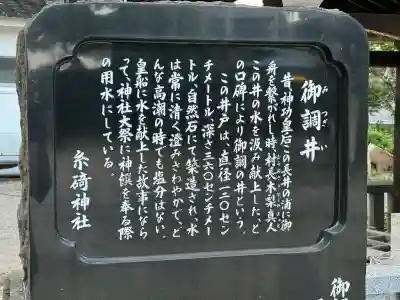 御調井
みつぎい
昔、神功皇后この長井の浦に御
舟を繋がれし時、村長木梨真人
この井の水を汲み献上した、と
の口碑により御調の井という。
この井戸は、直径一三〇セン
チメートル、深さ三三〇センチメー
トル、自然石にて築造され、水
は常に清く澄みさわやかで、ど
んな高潮の時にも塩分はない。
皇船に水を献上した故事になら
って、神社大祭に神饌を奉る際
の用水にしている。
糸碕神社
御